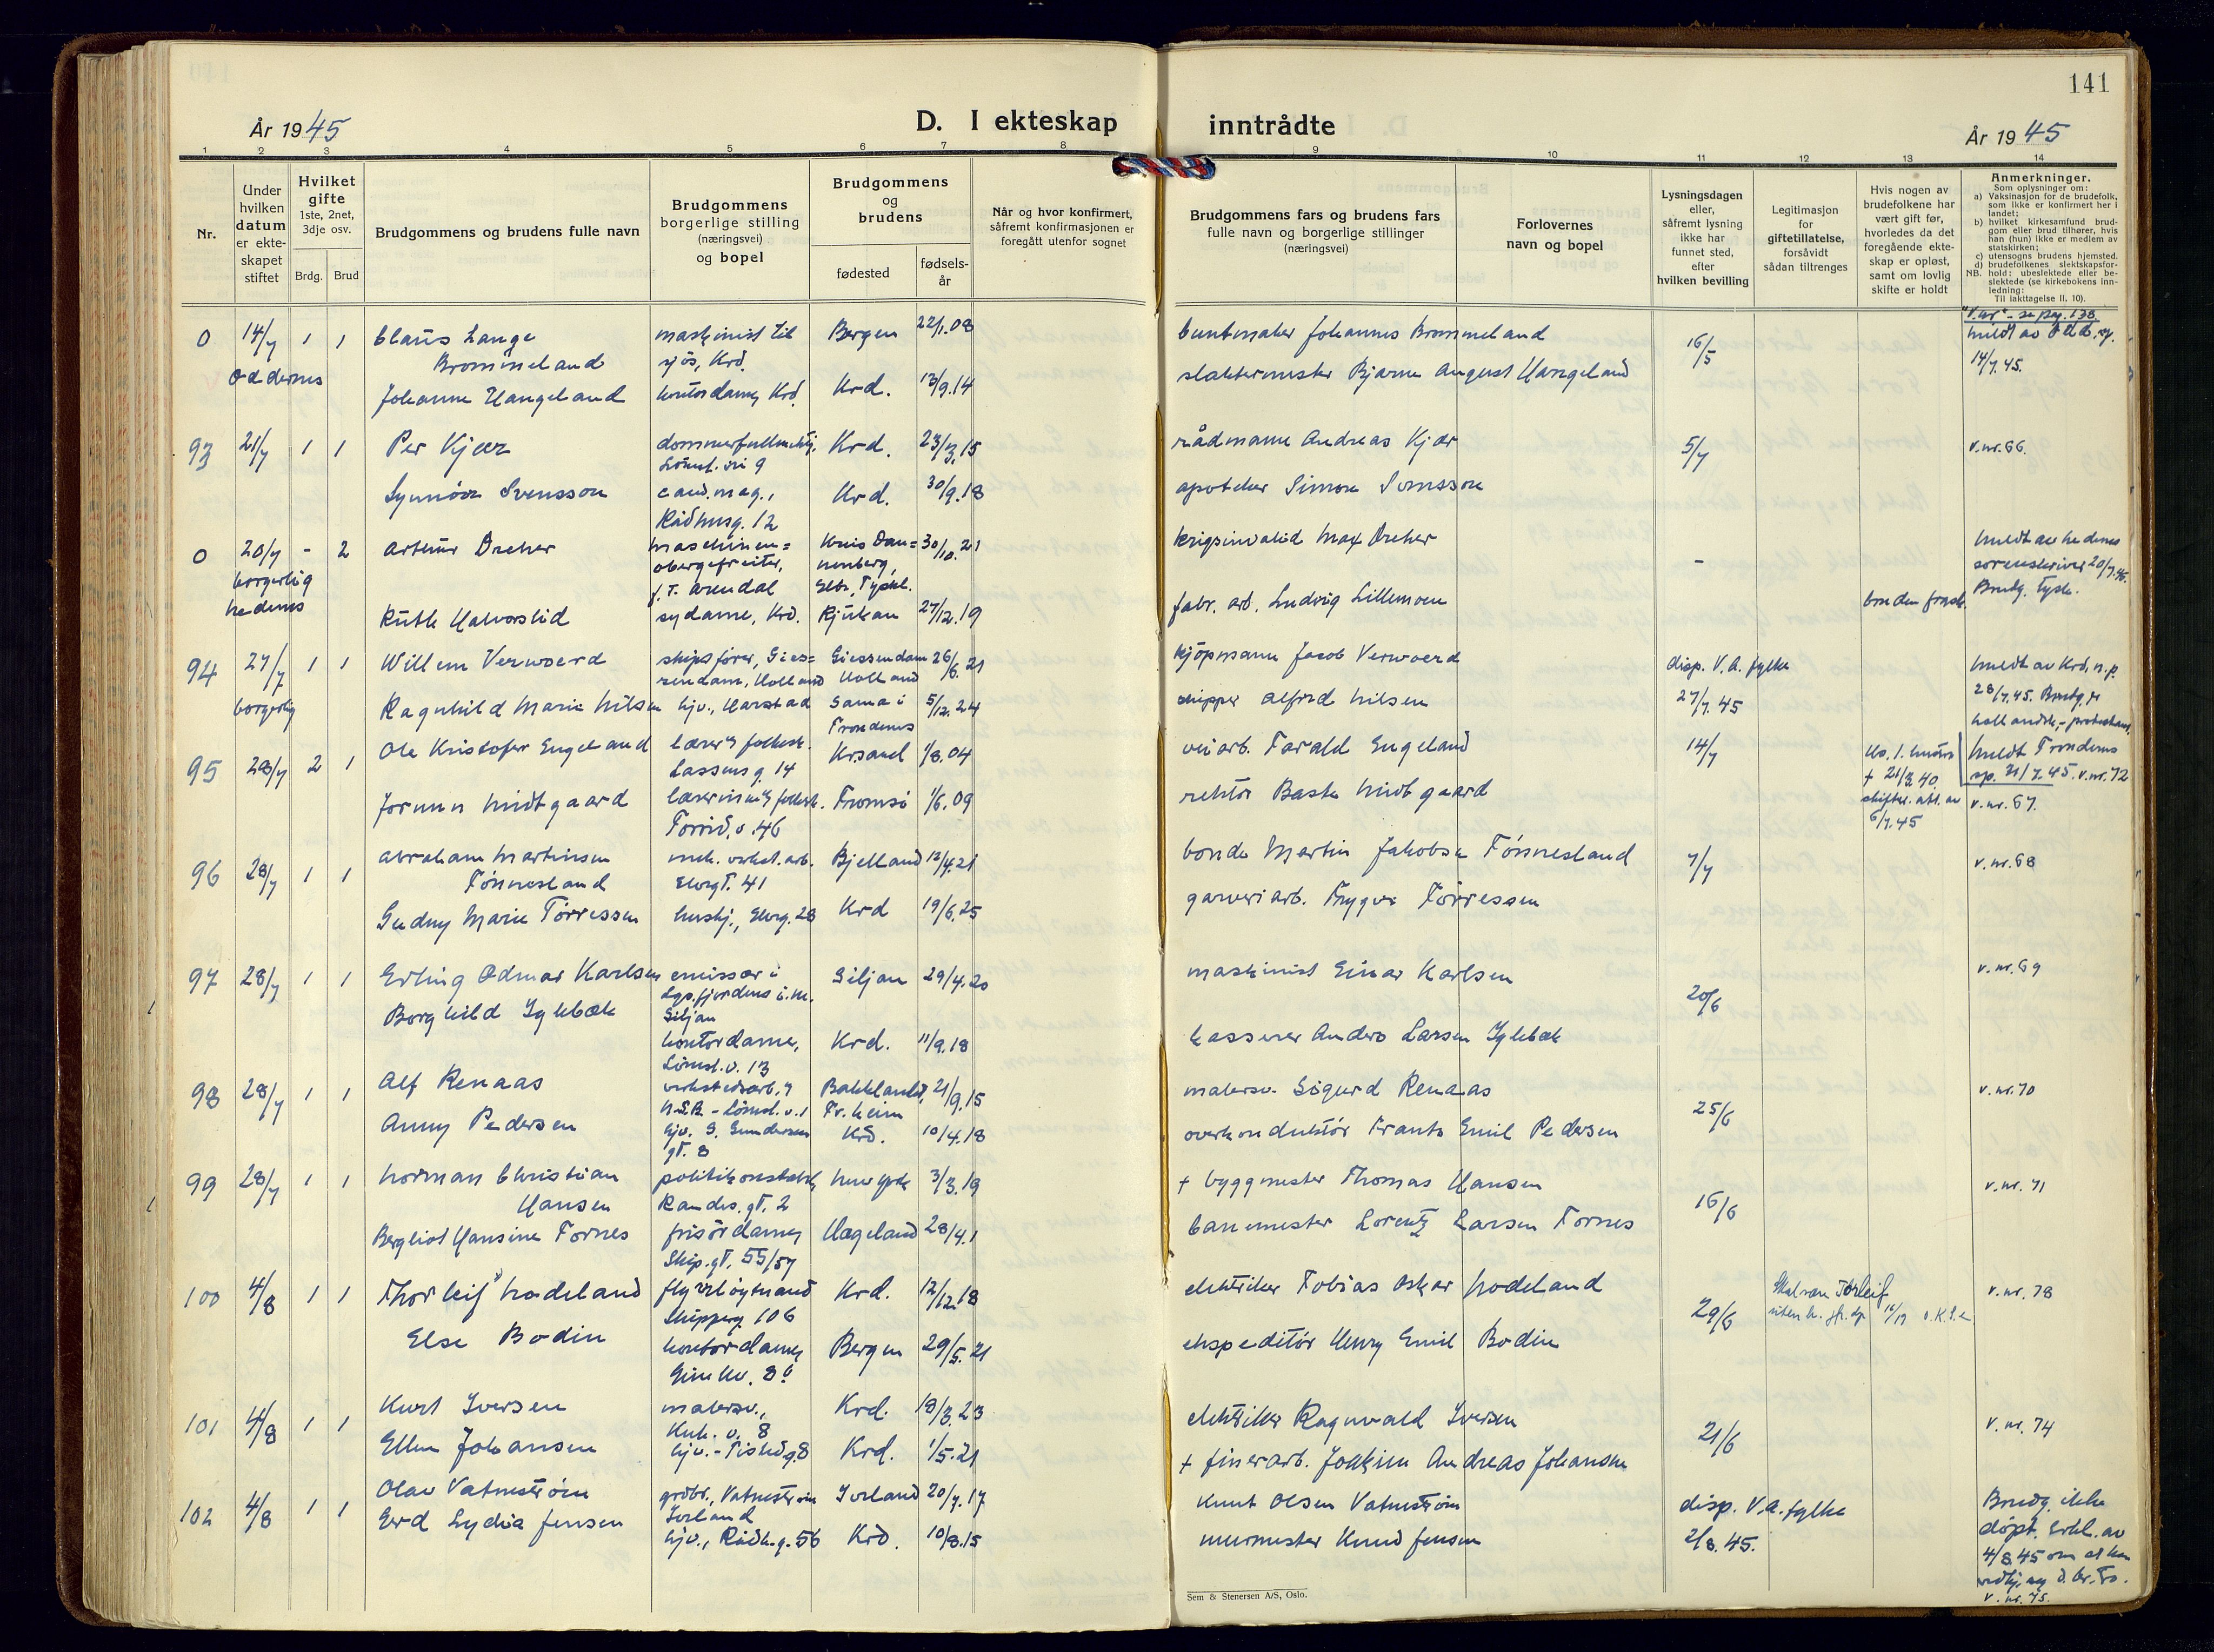 141
År 1945
D. I ekteskap inntrådte
År 1945
1 2 3 4 5 6 7 8 9 10 11 12 13 14
Nr.
Under
hvilken
datum
er ekte-
skapet
stiftet
Hvilket
gifte
1ste, 2net,
3dje osv.
Brdg. Brud
Brudgommens og brudens fulle navn
Brudgommens
borgerlige stilling
(næringsvei)
og bopel
Brudgommens
og
brudens
fødested
fødsels-
år
Når og hvor konfirmert,
såfremt konfirmasjonen er
foregått utenfor sognet
Brudgommens fars og brudens fars
fulle navn og borgerlige stillinger
(næringsvei)
Forlovernes
navn og bopel
Lysningsdagen
eller,
såfremt lysning
ikke har
funnet sted,
efter
hvilken bevilling
Legitimasjon
for
giftetillatelse,
forsåvidt
sådan tiltrenges
Hvis nogen av
brudefolkene har
vært gift før,
hvorledes da det
foregående ekte-
skap er opløst,
samt om lovlig
skifte er holdt
Anmerkninger.
Som oplysninger om:
a) Vaksinasjon for de brudefolk,
som ikke er konfirmert her i
landet;
b) hvilket kirkesamfund brud-
gom eller brud tilhører, hvis
han (hun) ikke er medlem av
statskirken;
c) utensogns brudens hjemsted.
d) brudefolkenes slektskapsfor-
NB. hold: ubeslektede eller be-
slektede (se kirkebokens inn-
ledning:
Til iakttagelse II, 10).
0 14/7 1 1 Claus Lange maskinist til Bergen 22/1.08 buntmaker Johannes Brommeland 16/5
Oddernes Brommeland sjøs, Krd. 14/7.45.
Johanne Hangeland kontordame, Krd. Krd. 13/9.14 slaktermester Bjarne August Hangeland
93 21/7 1 1 Per Kjær dommerfullmektig, Krd. 23/3.15 rådmann Andreas Kjær 5/7 v.nr. 66.
Synnøve Svensson cand.mag., Krd. 30/9.18 apoteker Simon Svensson
Rådhusg. 12
0 20/7 - 2 Arthur Dreher maschinen= 30/10.21 krigsinvalid Max Dreher - meldt av Hedenes
borgerlig obergefreiter, nenberg, sorenskriver 20/7.45.
Hedenes f.t. Arendal Elbe, Tyskl. Brudg. tysk.
Ruth Halvorslid sydame, Krd. Rjukan 27/12.19 fabr. arb. Ludvig Lillemoen bruden frask.
94 27/7 1 1 Willem Verwoerd skipsfører, Gies= Giessendam 26/6.21 kjøpmann Jacob Verwoerd disp. V.A. fylke meldt av Krd. n.p.
sendam, Holland Holland 28/7.45. Brudg. er
borgerlig Ragnhild Marie Nilsen hjv., Harstad Sama i 5/12.24 skipper Alfred Nilsen 27/7.45 hollandsk, - protestant.
Trondenes
95 28/7 2 1 Ole Kristofer Engeland lærer v/ folkesk. Krsand 1/8.04 veiarb. Tarald Engeland 14/7 meldt Trondenes
Lassens g. 14 † 21/3.40. sp. 21/7.45. v.nr. 72
Jorunn Midtgaard lærerinne v/ folkesk. Tromsø 1/6.09 rektor Baste Midtgaard skifteatt. av v.nr. 67.
Torrid. v. 46 6/7.45
96 28/7 1 1 Abraham Martinsen mek. verkst. arb. Bjelland 12/4.21 bonde Martin Jakobsen Tønnesland 7/7 v.nr. 68
Tønnesland Elvegt. 41
Gudny Marie Tørressen hushj., Elveg. 28 Krd 19/6.25 garveriarb. Trygve Tørressen
97 28/7 1 1 Erling Odmar Karlsen emissær i Siljan 29/4.20 maskinist Einar Karlsen 20/6 v.nr. 69
Borghild Iglebæk Siljan
kontordame, Krd. 11/9.18 kasserer Anders Larsen Iglebæk
Lømsl. v. 13
98 28/7 1 1 Alf Renaas verkstedsarb. v/ Bakklandet, 21/9.15 malersv. Sigurd Renaas 25/6 v.nr. 70
N.S.B. - Lømsl. v. 1 Tr.heim
Anny Pedersen hjv. G. Gundersens Krd. 10/4.18 overkonduktør Frants Emil Pedersen
gt. 8
99 28/7 1 1 Norman Christian politikonstabel, New York 3/3.19 † byggmester Thomas Hansen 16/6 v.nr. 71
Hansen Randes. gt. 2
Bergliot Hansine Fornes frisørdame, Hægeland 28/4.1 banemester Lorentz Larsen Fornes
Skip. gt. 55/57
100 4/8 1 1 Thorleif Nodeland flyverløytnant Krd. 12/12.18 elektriker Tobias Oskar Nodeland 29/6 Skal være Torleif v.nr. 78
Skipperg. 106 uten h.
Else Bodin kontordame, Bergen 29/5.21 ekspeditør Henry Emil Bodin
101 4/8 1 1 Kurt Iversen malersv., Krd. 18/3.23 elektriker Ragnvald Iversen 21/6 v.nr. 74
Kuh. v. 8
Ellen Johansen hjv. - Tistedg. 8 Krd. 1/5.21 † finerarb. Joakim Andreas Johansen
102 4/8 1 1 Olav Vatnestrøm grdbr., Vatnestrøm Iveland 20/7.17 Knut Olsen Vatnestrøm disp. V.A. fylke Brudg. ikke
Iveland døpt. Erkl. av
Gerd Lydia Jensen hjv., Rådh.g. 56 Krd. 10/8.15 murmester Knud Jensen 2/8.45. 4/8.45 om at han
v.nr. 75.
Sem & Stenersen A/S, Oslo.